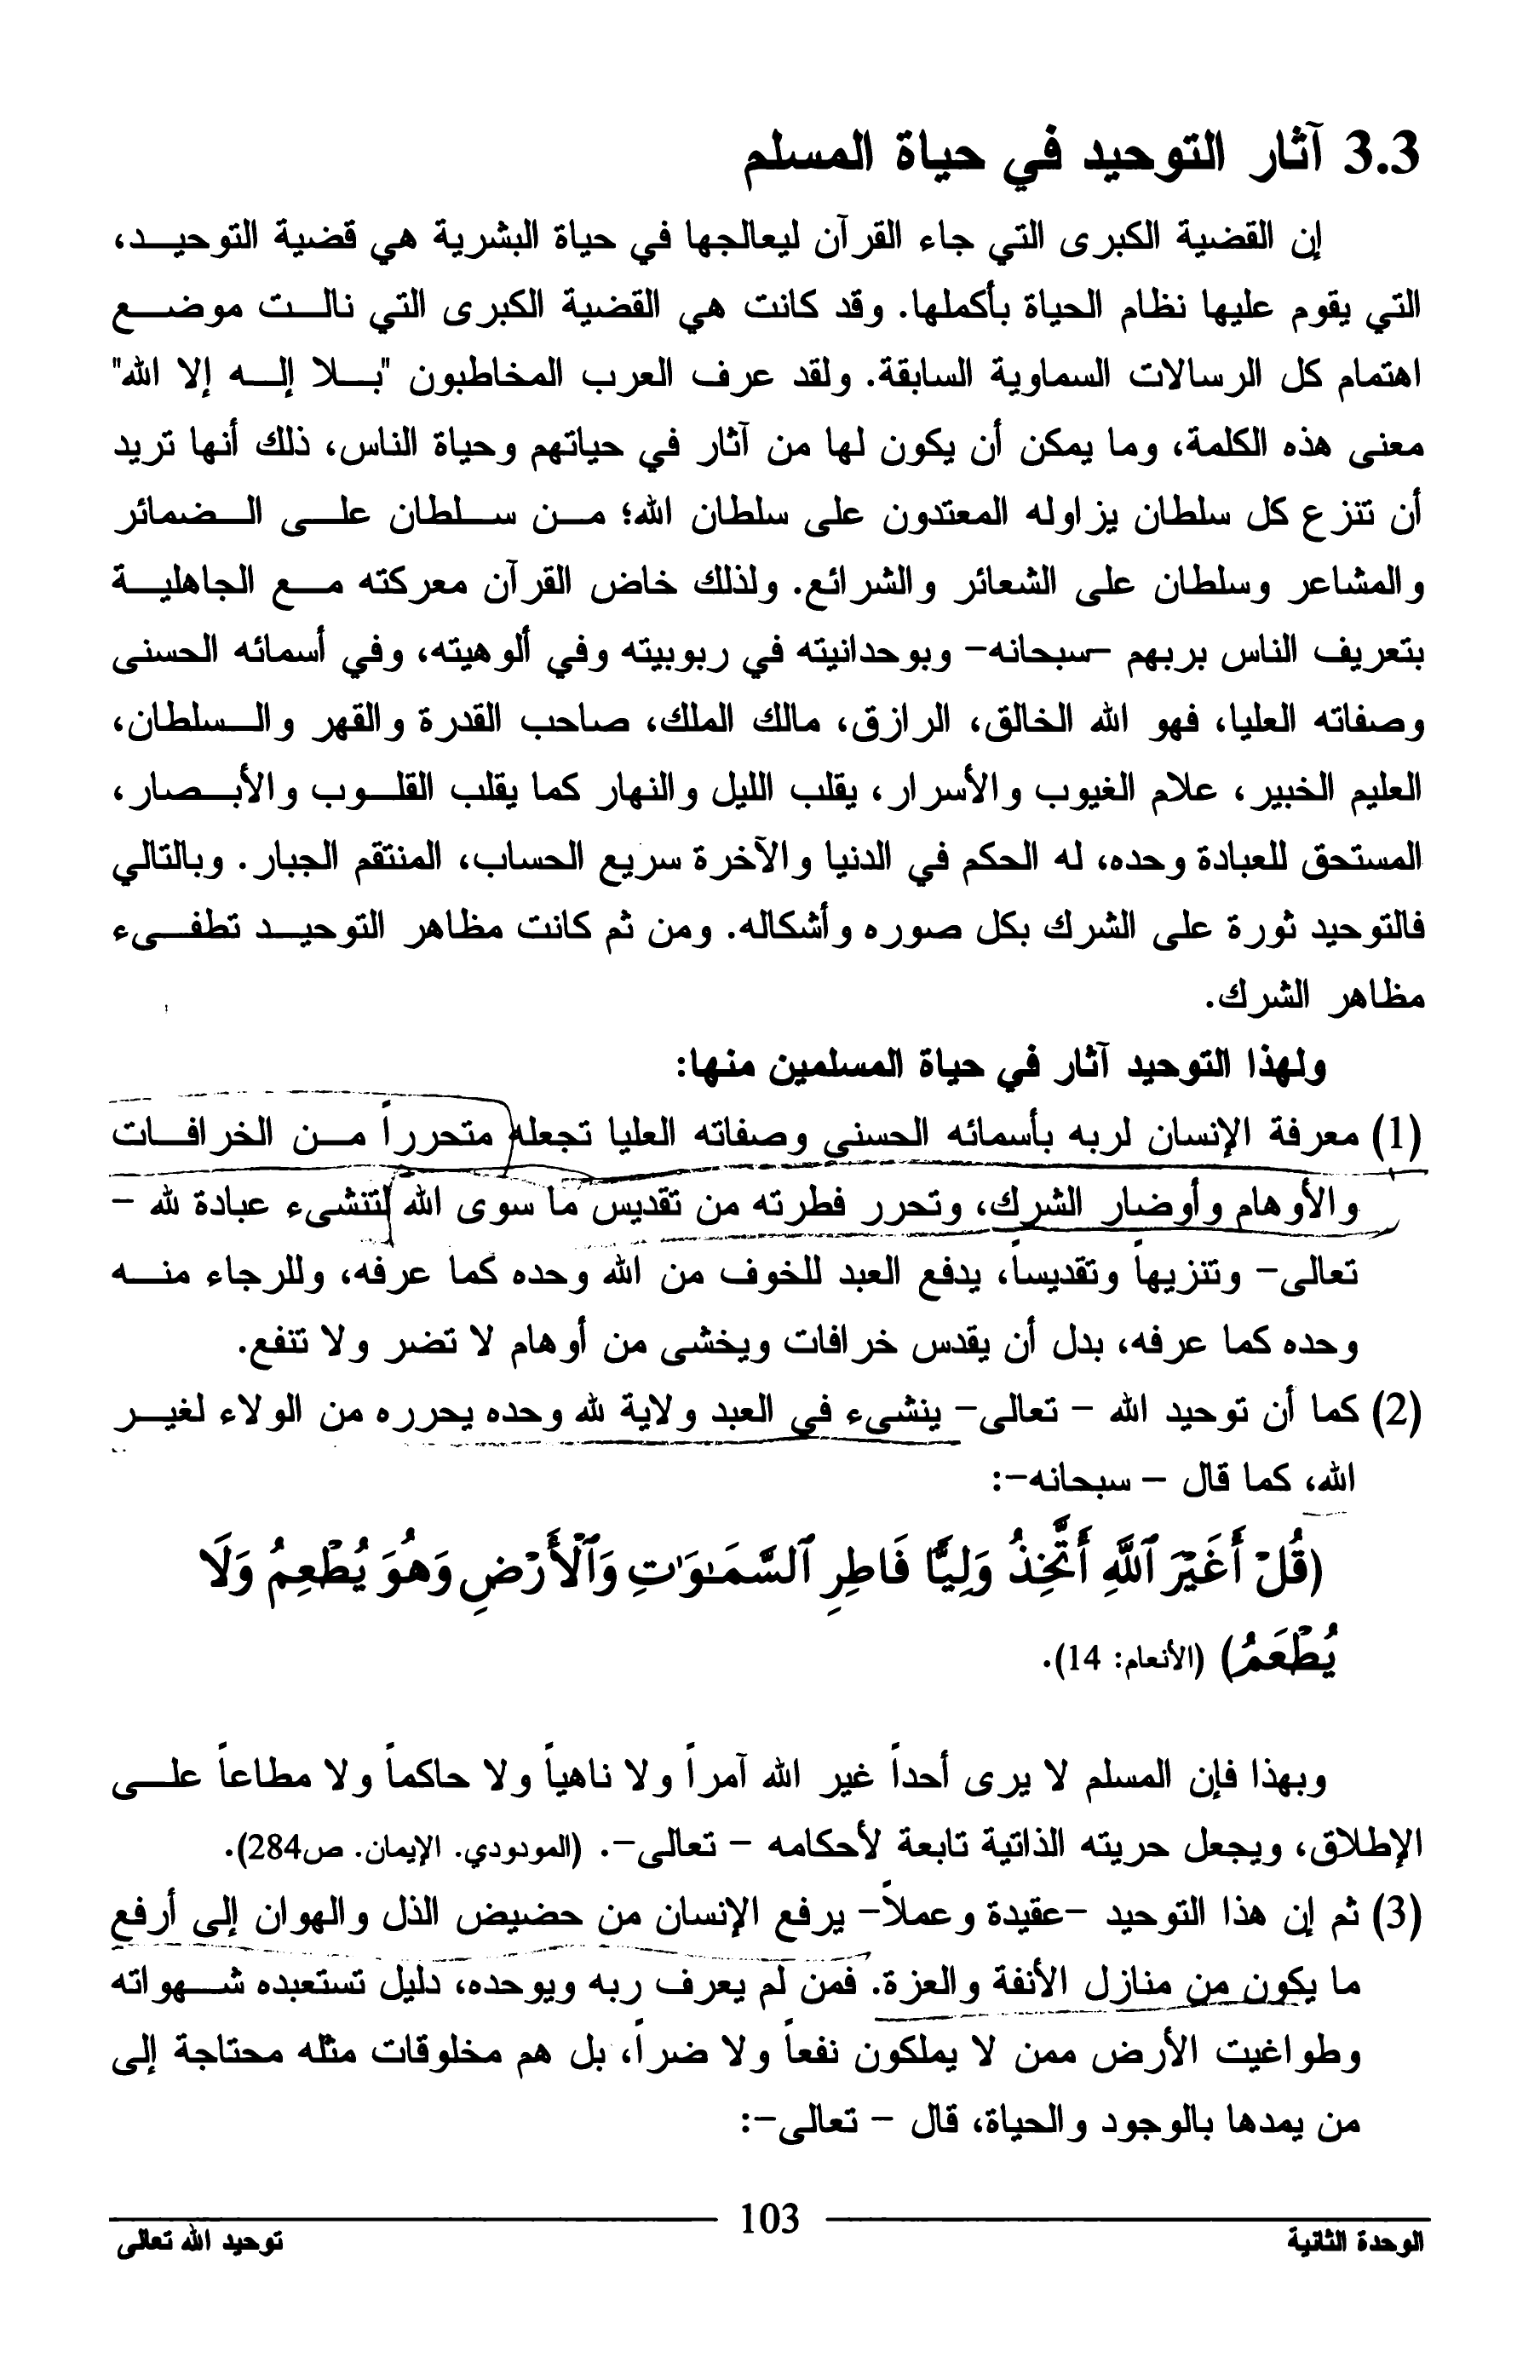 3.3 آثار التوحيد في حياة المسلم
إن القضية الكبرى التي جاء القرآن ليعالجها في حياة البشرية هي قضية التوحيد،
التي يقوم عليها نظام الحياة بأكملها. وقد كانت هي القضية الكبرى التي نالت موضع
اهتمام كل الرسالات السماوية السابقة. ولقد عرف العرب المخاطبون "بلا إله إلا الله"
معنى هذه الكلمة، وما يمكن أن يكون لها من آثار في حياتهم وحياة الناس، ذلك أنها تريد
أن تنزع كل سلطان يزاوله المعتدون على سلطان الله؛ من سلطان على الضمائر
والمشاعر وسلطان على الشعائر والشرائع. ولذلك خاض القرآن معركته مع الجاهلية
بتعريف الناس بربهم -سبحانه- وبوحدانيته في ربوبيته وفي ألوهيته، وفي أسمائه الحسنى
وصفاته العليا، فهو الله الخالق، الرازق، مالك الملك، صاحب القدرة والقهر والسلطان،
العليم الخبير، علام الغيوب والأسرار، يقلب الليل والنهار كما يقلب القلوب والأبصار،
المستحق للعبادة وحده، له الحكم في الدنيا والآخرة سريع الحساب، المنتقم الجبار. وبالتالي
فالتوحيد ثورة على الشرك بكل صوره وأشكاله. ومن ثم كانت مظاهر التوحيد تطفىء
مظاهر الشرك.
ولهذا التوحيد آثار في حياة المسلمين منها:
(1) معرفة الإنسان لربه بأسمائه الحسنى وصفاته العليا تجعله متحرراً من الخرافات
والأوهام وأوضار الشرك، وتحرر فطرته من تقديس ما سوى الله لتنشىء عبادة لله -
تعالى- وتنزيهاً وتقديساً، يدفع العبد للخوف من الله وحده كما عرفه، وللرجاء منه
وحده كما عرفه، بدل أن يقدس خرافات ويخشى من أوهام لا تضر ولا تنفع.
(2) كما أن توحيد الله - تعالى- ينشىء في العبد ولاية لله وحده يحرره من الولاء لغير
الله، كما قال - سبحانه-:
(قُلْ أَغَيْرَ ٱللَّهِ أَتَّخِذُ وَلِيًّا فَاطِرِ ٱلسَّمَـٰوَٰتِ وَٱلْأَرْضِ وَهُوَ يُطْعِمُ وَلَا
يُطْعَمُ) (الأنعام: 14).
وبهذا فإن المسلم لا يرى أحداً غير الله آمراً ولا ناهياً ولا حاكماً ولا مطاعاً على
الإطلاق، ويجعل حريته الذاتية تابعة لأحكامه - تعالى-. (المودودي. الإيمان. ص284).
(3) ثم إن هذا التوحيد -عقيدة وعملاً- يرفع الإنسان من حضيض الذل والهوان إلى أرفع
ما يكون من منازل الأنفة والعزة. فمن لم يعرف ربه ويوحده، دليل تستعبده شهواته
وطواغيت الأرض ممن لا يملكون نفعاً ولا ضراً، بل هم مخلوقات مثله محتاجة إلى
من يمدها بالوجود والحياة، قال - تعالى-:
103
الوحدة الثانية
توحيد الله تعالى